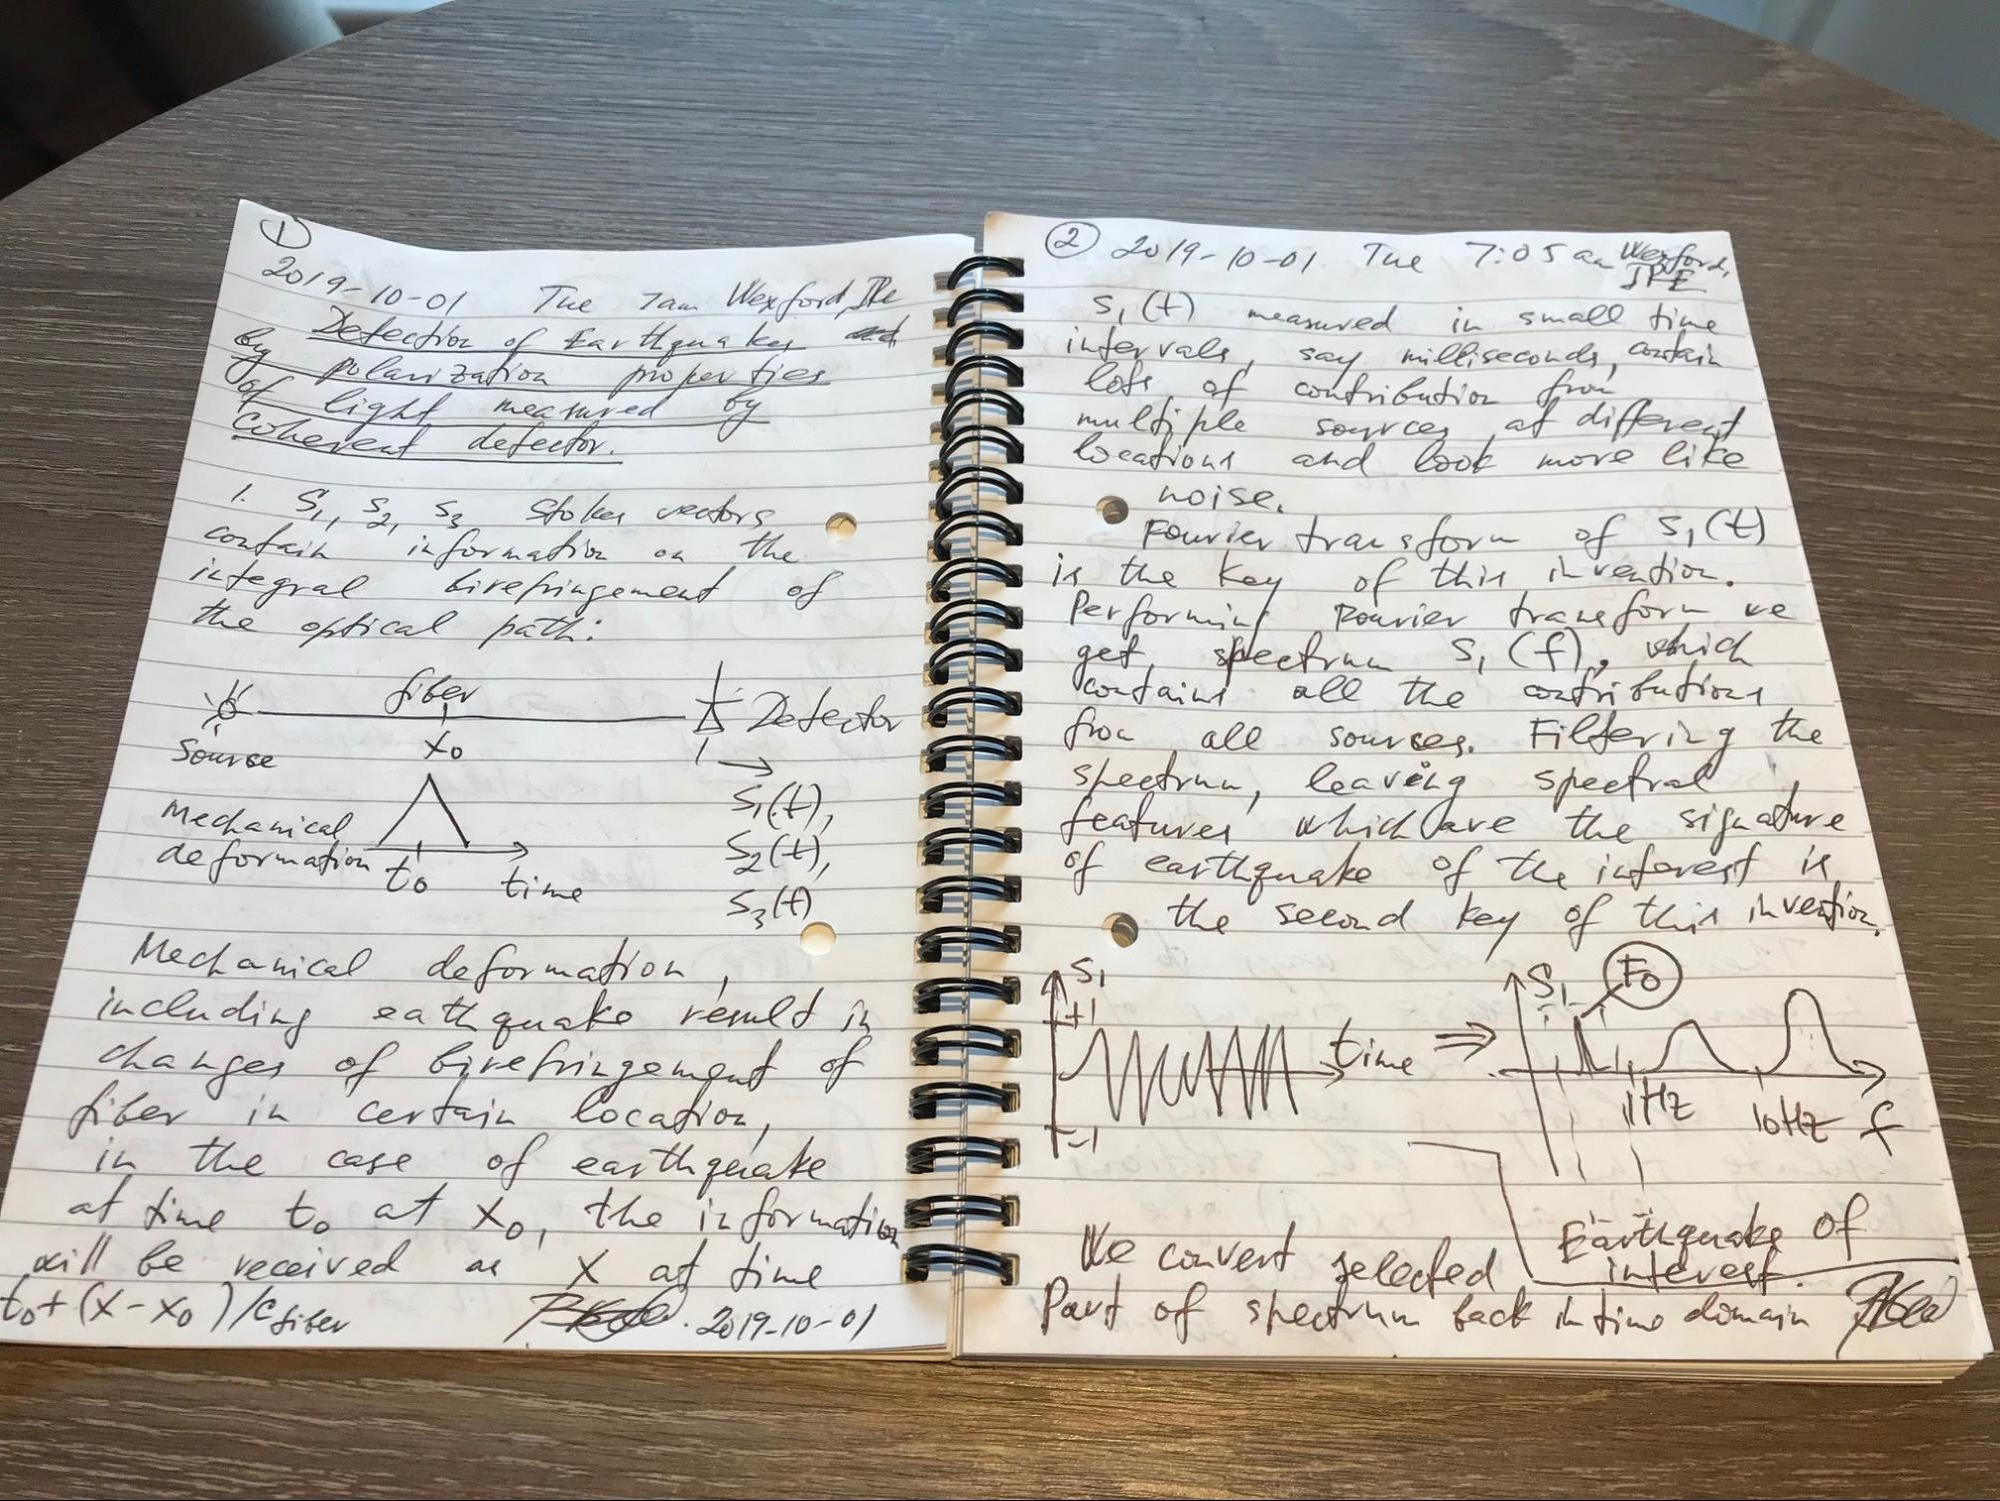 1
2019-10-01 Tue 7am Wexford, IRe
Detection of Earthquakes
by polarization properties
of light measured by
coherent detector.
1. S1, S2, S3 Stokes vectors
contain information on the
integral birefringement of
the optical path:
fiber
Detector
Source
x0
Mechanical
deformation
t0 time
S1(t),
S2(t),
S3(t)
Mechanical deformation,
including eathquake result in
changes of birefringement of
fiber in certain location,
in the case of earthquake
at time t0 at x0, the information
will be received as X at time
t0 + (x - x0)/c fiber
2019-10-01
2 2019-10-01 Tue 7:05 am Wexford,
IRE
S1(t) measured in small time
intervals, say milliseconds, contain
lots of contribution from
multiple sources at different
locations and look more like
noise.
Fourier transform of S1(t)
is the key of this invention.
Performing Fourier transform we
get spectrum S1(f), which
contains all the contributions
from all sources. Filtering the
spectrum, leaving spectral
features which are the signature
of earthquake of the interest is
the second key of this invention.
S1
+1
time
-1
⇒
S1
F0
1Hz
10Hz
f
Earthquake of
interest.
We convert selected
Part of spectrum back in time domain